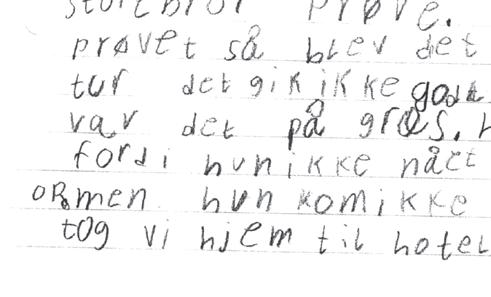 storebror prøve.
prøvet så blev det
tur det gik ikke godt
var det på græs. h
fordi hun ikke nået
ormen hun kom ikke
tog vi hjem til hotel